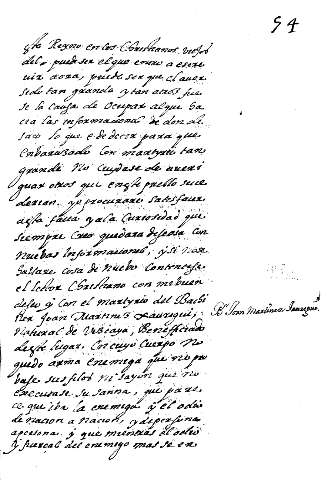 54
este Reyno en los Christianos viejos
del, puede ser el que entro a escre
uir aora, puede ser que el auer
sido tan grande y tan atros fue
se la causa de ocupar al que ha
cia las informaciones de
lo que e de decir para que
embaraçado con martyrio tan
grande no cuydase de averi
guar otros que en este pueblo suce
dieran. yo procurare satisfacer
a esta falta y a la curiosidad que
siempre creo quedara deseosa con
nuebas informaciones, y si no se
hallare cosa de nuebo contentese
el letor Christiano con mi buen
deseo y con el martyrio del Bachi
ller Joan Martinez Jauregui,
natural de Viscaya, Beneficiado
de este lugar. con cuyo cuerpo no
quedo arma enemiga que no pro
base sus filos ni sayon que no
executase su saña, que pare
ce que iba la enemiga y el odio
de nacion a nacion, y de persona
a persona. y que mientras el odio
y parcial del enemigo mas se en
Br. Joan Martinez Jauregui